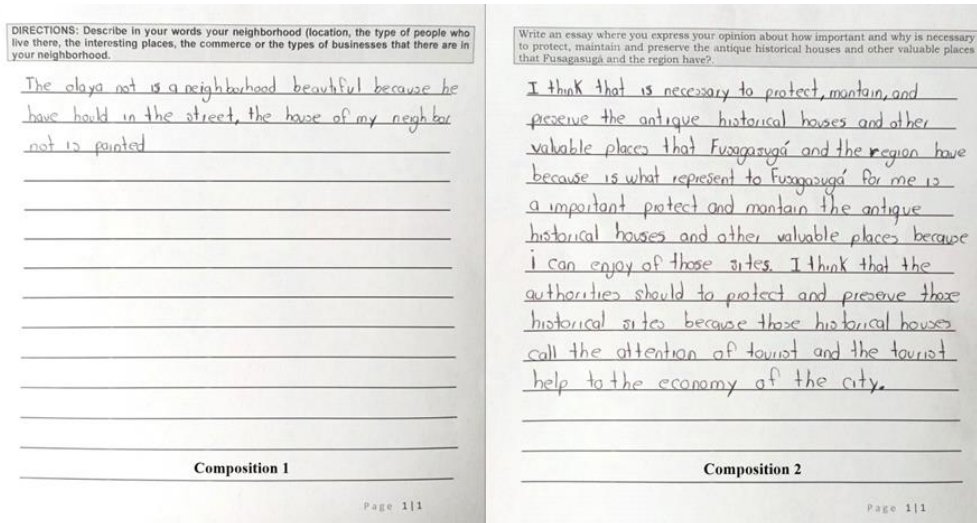 DIRECTIONS: Describe in your words your neighborhood (location, the type of people who
live there, the interesting places, the commerce or the types of businesses that there are in
your neighborhood.
The olaya not is a neighborhood beautiful because he
have hould in the street, the house of my neigh bor
not is painted
Composition 1
Page 1|1
Write an essay where you express your opinion about how important and why is necessary
to protect, maintain and preserve the antique historical houses and other valuable places
that Fusagasugá and the region have?.
I think that is necessary to protect, mantain, and
preserve the antique historical houses and other
valuable places that Fusagasugá and the region have
because is what represent to Fusagasugá for me is
a important protect and mantain the antique
historical houses and other valuable places because
i can enjoy of those sites. I think that the
authorities should to protect and preserve those
historical sites because those historical houses
call the attention of tourist and the tourist
help to the economy of the city.
Composition 2
Page 1|1